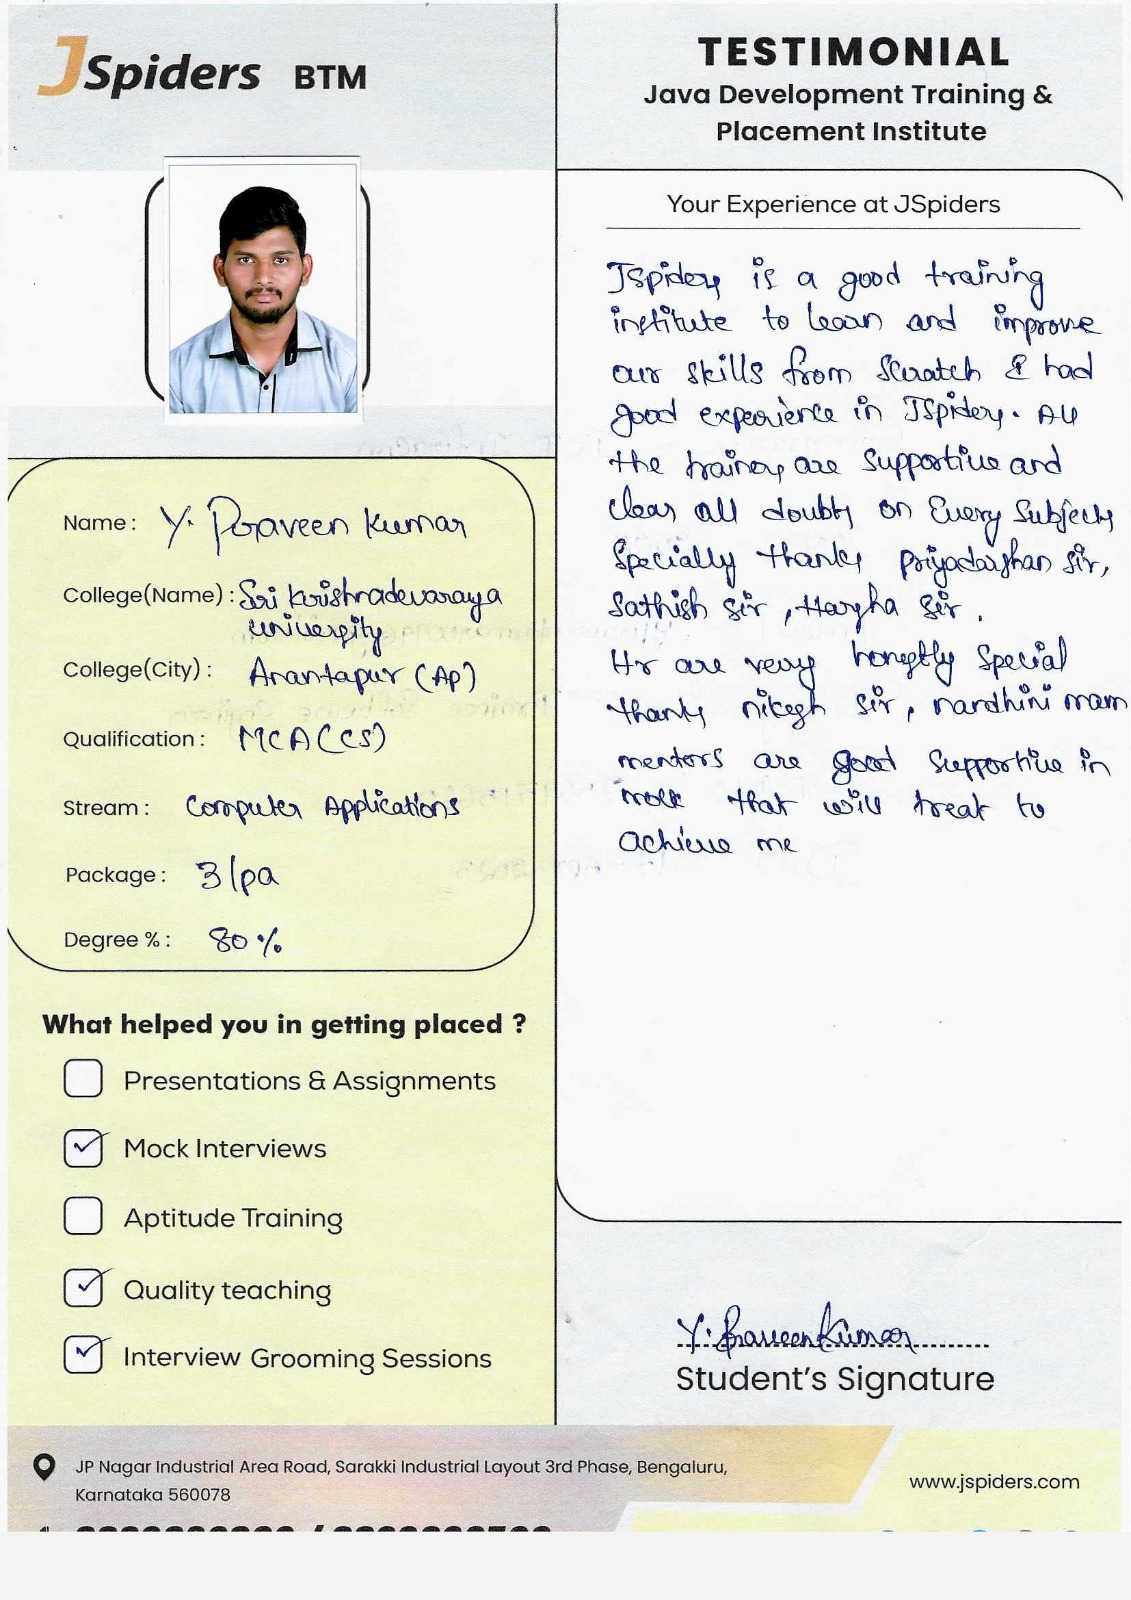 JSpiders BTM
Name : Y. Praveen Kumar
College(Name) : Sri krishnadevaraya
university
College(City) : Anantapur (Ap)
Qualification : MCA (CS)
Stream : Computer Applications
Package : 3 lpa
Degree % : 80 %
What helped you in getting placed ?
Presentations & Assignments
Mock Interviews
Aptitude Training
Quality teaching
Interview Grooming Sessions
TESTIMONIAL
Java Development Training &
Placement Institute
Your Experience at JSpiders
JSpiders is a good training
institute to learn and improve
our skills from Scratch & had
good experience in JSpiders. All
the trainers are Supportive and
clear all doubts on Every Subjects
Specially thanks priyadarshan sir,
Sathish sir , Harsha sir .
Hr are very honestly Special
thanks nikesh sir, nandhini mam
mentors are good Supportive in
mock that will treat to
achieve me
Y. Praveen Kumar
Student's Signature
JP Nagar Industrial Area Road, Sarakki Industrial Layout 3rd Phase, Bengaluru,
Karnataka 560078
www.jspiders.com